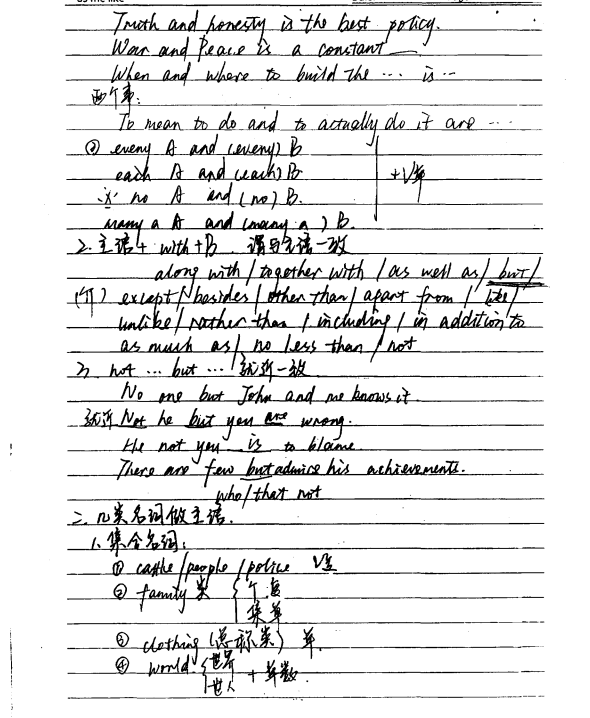 as the like
Truth and honesty is the best policy.
War and Peace is a constant
When and where to build the ... is ...
两个事:
To mean to do and to actually do it are ...
② every A and (every) B
each A and (each) B
no A and (no) B. + V单
many a A and (many a) B.
2. 主语 + with + B 谓与主语一致
along with / together with / as well as / but /
(介) except / besides / other than / apart from / like /
unlike / rather than / including / in addition to
as much as / no less than / not
3. not ... but ... 就近一致
No one but John and me knows it.
就近 Not he but you are wrong.
He not you is to blame.
There are few but admire his achievements.
who/that not
二. 几类名词做主语.
1. 集合名词:
① cattle / people / police V复
② family 类 { 个 复
集 单
③ clothing (总称类) 单.
④ world { 世界 + 单数.
世人